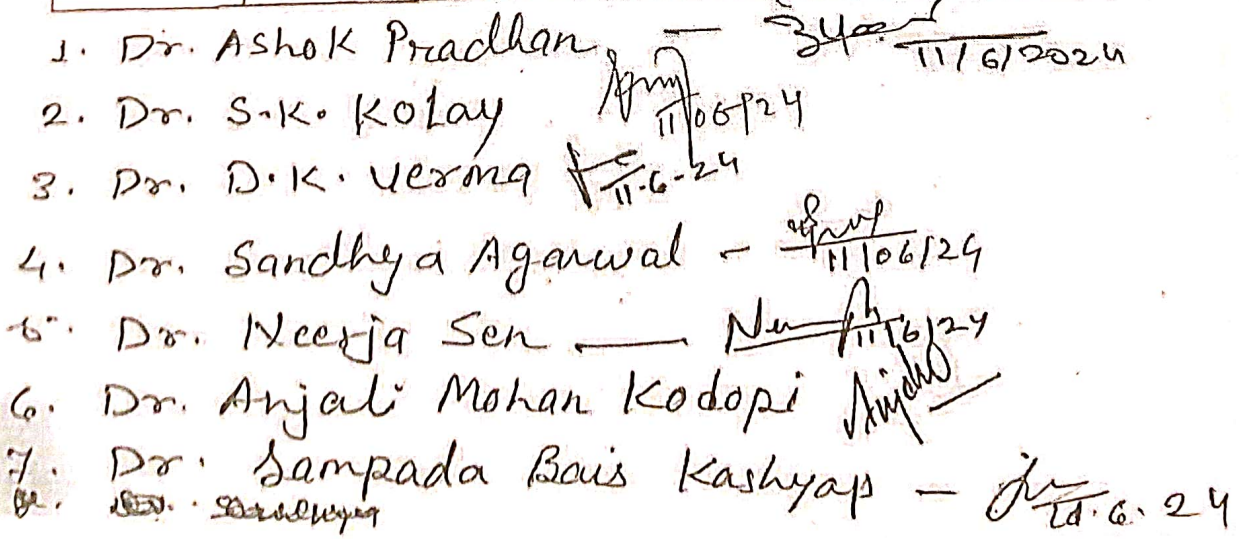 1. Dr. Ashok Pradhan — 11/6/2024
2. Dr. S.K. Kolay 11/06/24
3. Dr. D.K. Verma 11.6.24
4. Dr. Sandhya Agarwal - 11/06/24
5. Dr. Neerja Sen — 11/6/24
6. Dr. Anjali Mohan Kodopi Anjali
7. Dr. Sampada Bais Kashyap - 11.6.24